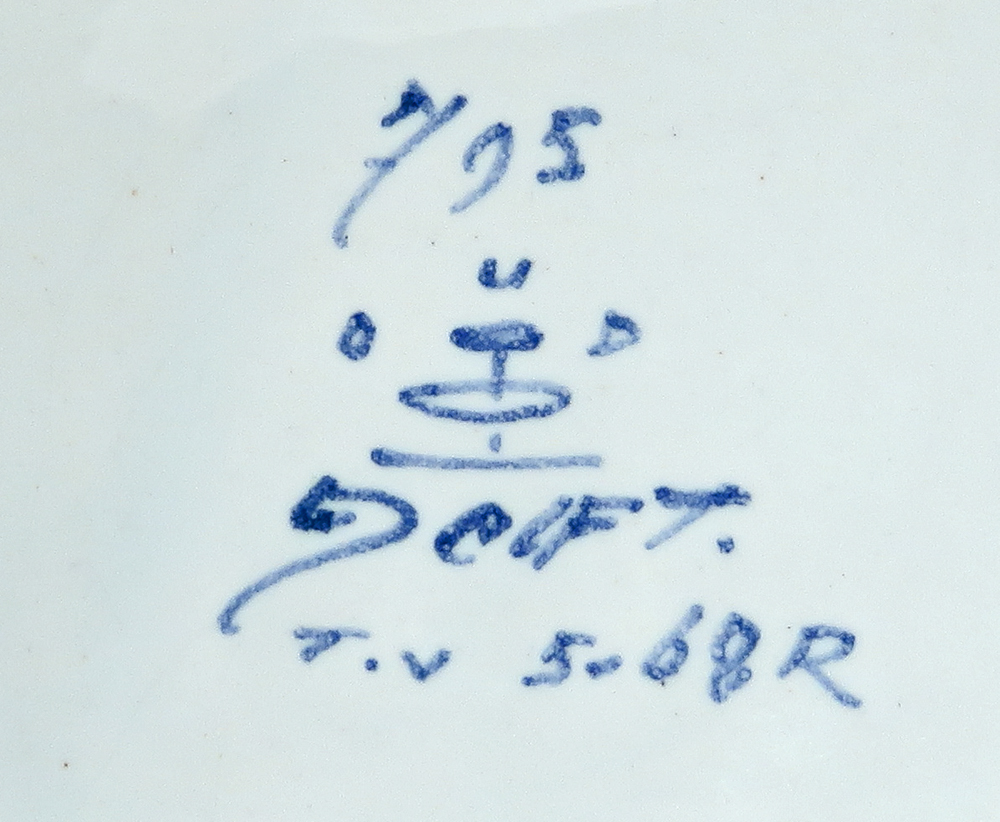 795
OUD
Delft.
T.V 5-68 R